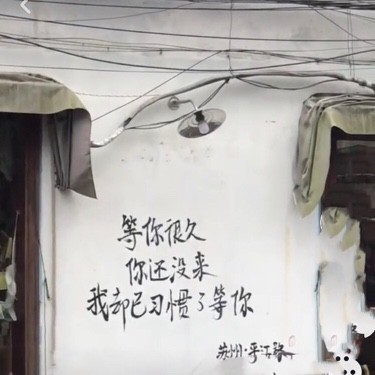 等你很久
你还没来
我却已习惯了等你
苏州·平江路